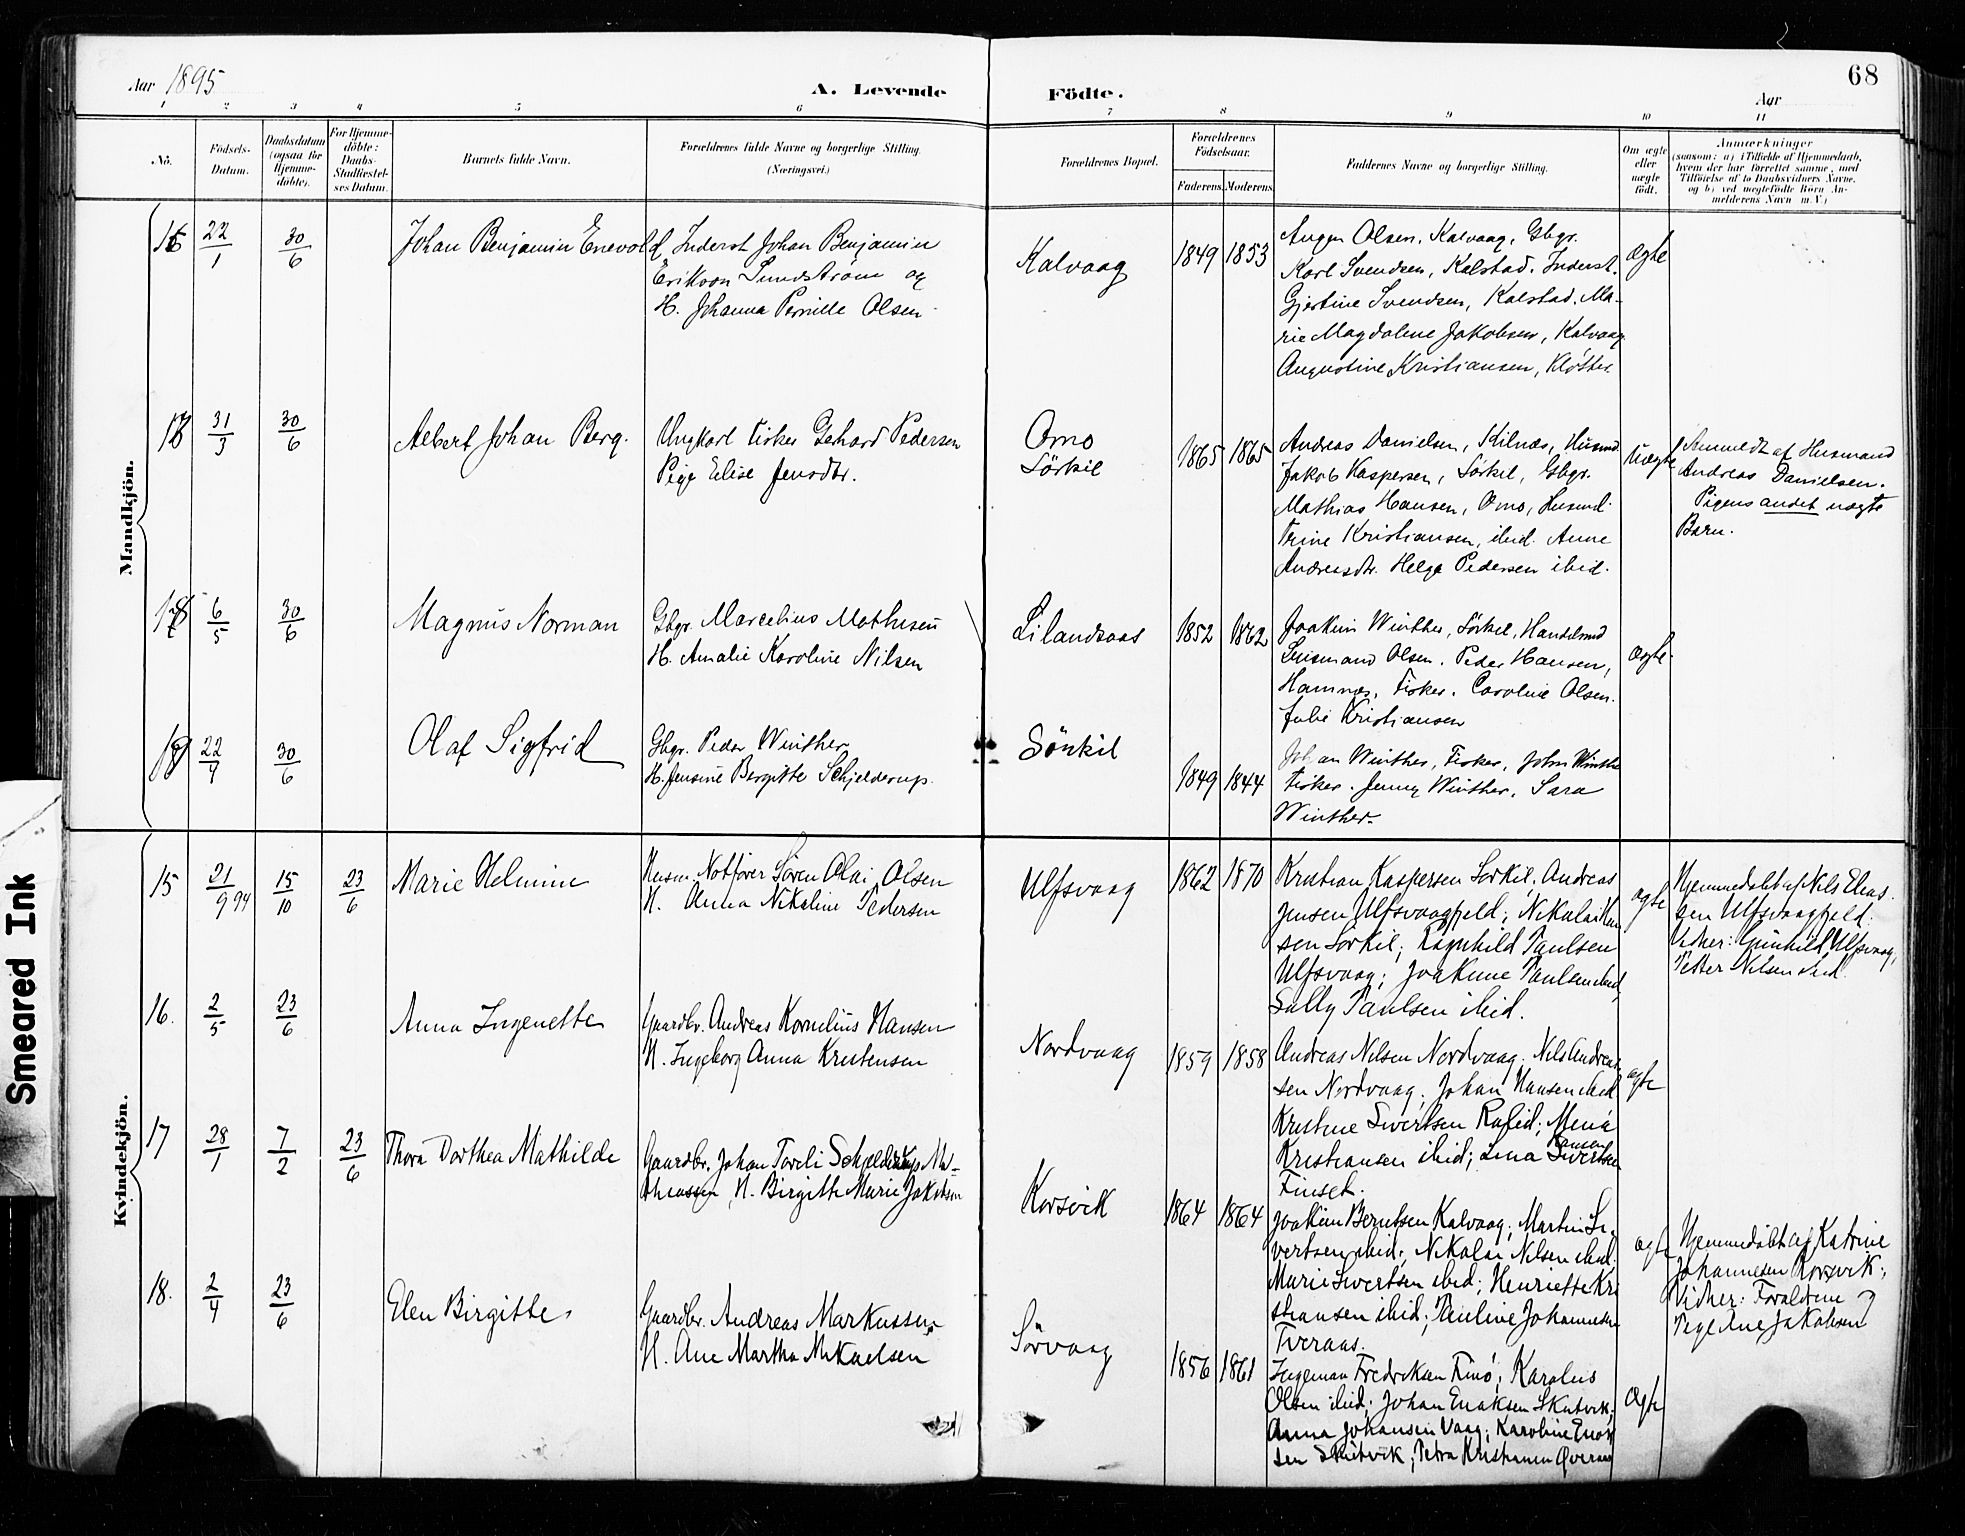 68
Aar 1895
A. Levende
Födte.
Aar
1 2 3 4 5 6 7 8 9 10 11
No.
Födsels-
Datum.
Daabsdatum
(ogsaa for
Hjemme-
döbte).
For Hjemme-
döbte:
Daabs-
Stadfæstel-
ses Datum.
Barnets fulde Navn.
Forældrenes fulde Navne og borgerlige Stilling.
(Næringsvei.)
Forældrenes Bopæl.
Forældrenes
Födselsaar.
Faderens. Moderens.
Faddernes Navne og borgerlige Stilling.
Om ægte
eller
uægte
födt.
Anmærkninger
(saasom: a) i Tilfælde af Hjemmedaab,
hvem der har forrettet samme, med
Tilföielse af to Daabsvidners Navne.
og b) ved uægtefödte Börn An-
melderens Navn m. V.)
Mandkjön.
16
22/1
30/6
Johan Benjamin Enevold
Inderst Johan Benjamin
Erikson Sundström og
H. Johanna Pernille Olsen
Kalvaag
1849 1853
Olsen, Kalvaag, Gbgr.
Karl Svendsen, Kalstad. Inderst.
Gjertine Svendsen, Kalstad. Ma-
rie Magdalene Jakobsen, Kalvaag
Augustine Kristiansen, Kløtter
Ægte
17
31/3
30/6
Albert Johan Berg.
Ungkarl Fisker Gerhard Pedersen
Pige Elise Jensdtr.
Omo
Sörkil
1865 1865
Andreas Danielsen, Kilnæs, Husmd
Jakob Kaspersen, Sörkil, Gbgr.
Mathias Hansen, Omo, Husmd.
Trine Kristiansen, ibid. Anne
Andreasdtr. Helga Pedersen ibid.
Uægte
Anmeldt af Husmand
Andreas Danielsen.
Pigens andet uægte
Barn.
18
6/5
30/6
Magnus Norman
Gbgr. Marcelius Mathisen
H. Amalie Karoline Nilsen
Lilandsaas
1852 1862
Joakim Winther, Sörkil, Handelsmd
Olsen. Peder Hansen,
Hamnæs, Fisker. Caroline Olsen.
Julie Kristiansen
Ægte.
19
22/4
30/6
Olaf Sigfrid
Gbgr. Peder Winther
H. Jensine Bergitte Schjelderup.
Sörkil
1849 1844
Johan Winther, Fisker, John Winther
Fisker. Jenny Winther. Sara
Winther.
Kvindekjön.
15
21/9 94
15/10
23/6
Marie Helmine
Husm. Notfører Sören Olai Olsen
H. Anna Nikoline Pedersen
Ulfsvaag
1862 1870
Kristian Kaspersen Sørkil; Andreas
Jensen Ulfsvaagfjeld; Nikolai Han
sen Sørkil; Ragnhild Paulsen
Ulfsvaag; Joakime Paulsen ibid;
Sally Paulsen ibid.
ægte
Hjemmedøbt af Nils Elias
sen Ulfsvaagfjeld.
Vidner: Gunhild Ulfsvaag,
Petter Nilsen ibid.
16.
2/5
23/6
Anna Ingenette
Gaardbr. Andreas Kornelius Hansen
H. Ingeborg Anna Kristensen
Nordvaag
1859 1858
Andreas Nilsen Nordvaag; Nils Andrea
sen Nordvaag; Johan Hansen ibid
Kristine Sivertsen; Mena
Kristiansen ibid; Lina Hansen Sivertsen
Finset.
ægte
17
28/1
7/2
23/6
Thora Dorthea Mathilde
Gaardbr. Johan Toreli Schjelderup Ma-
thiassen, H. Birgitte Marie Jakobsen
Korsvik
1864 1864
Joakim Berntsen Kalvaag; Martin Si
vertsen ibid; Nikolai Nilsen ibid;
Marie Sivertsen ibid; Henriette Kri
stiansen ibid; Pauline Johannesen
Tveraas.
ægte
Hjemmedøbt af Katrine
Johannesen Korsvik;
Vidner: Forældrene
Pige Ane Jakobsen
18.
2/4
23/6
Elen Birgitte
Gaardbr. Andreas Markussen
H. Ane Martha Mikaelsen
Sörvaag
1856 1861
Ingeman Fredriksen Finö; Karolus
Olsen ibid; Johan Enoksen Skutvik;
Anna Johansen Vaag; Karoline Enok
sen Skutvik; Petra Kristiansen Øveraas
Ægte
Smeared Ink